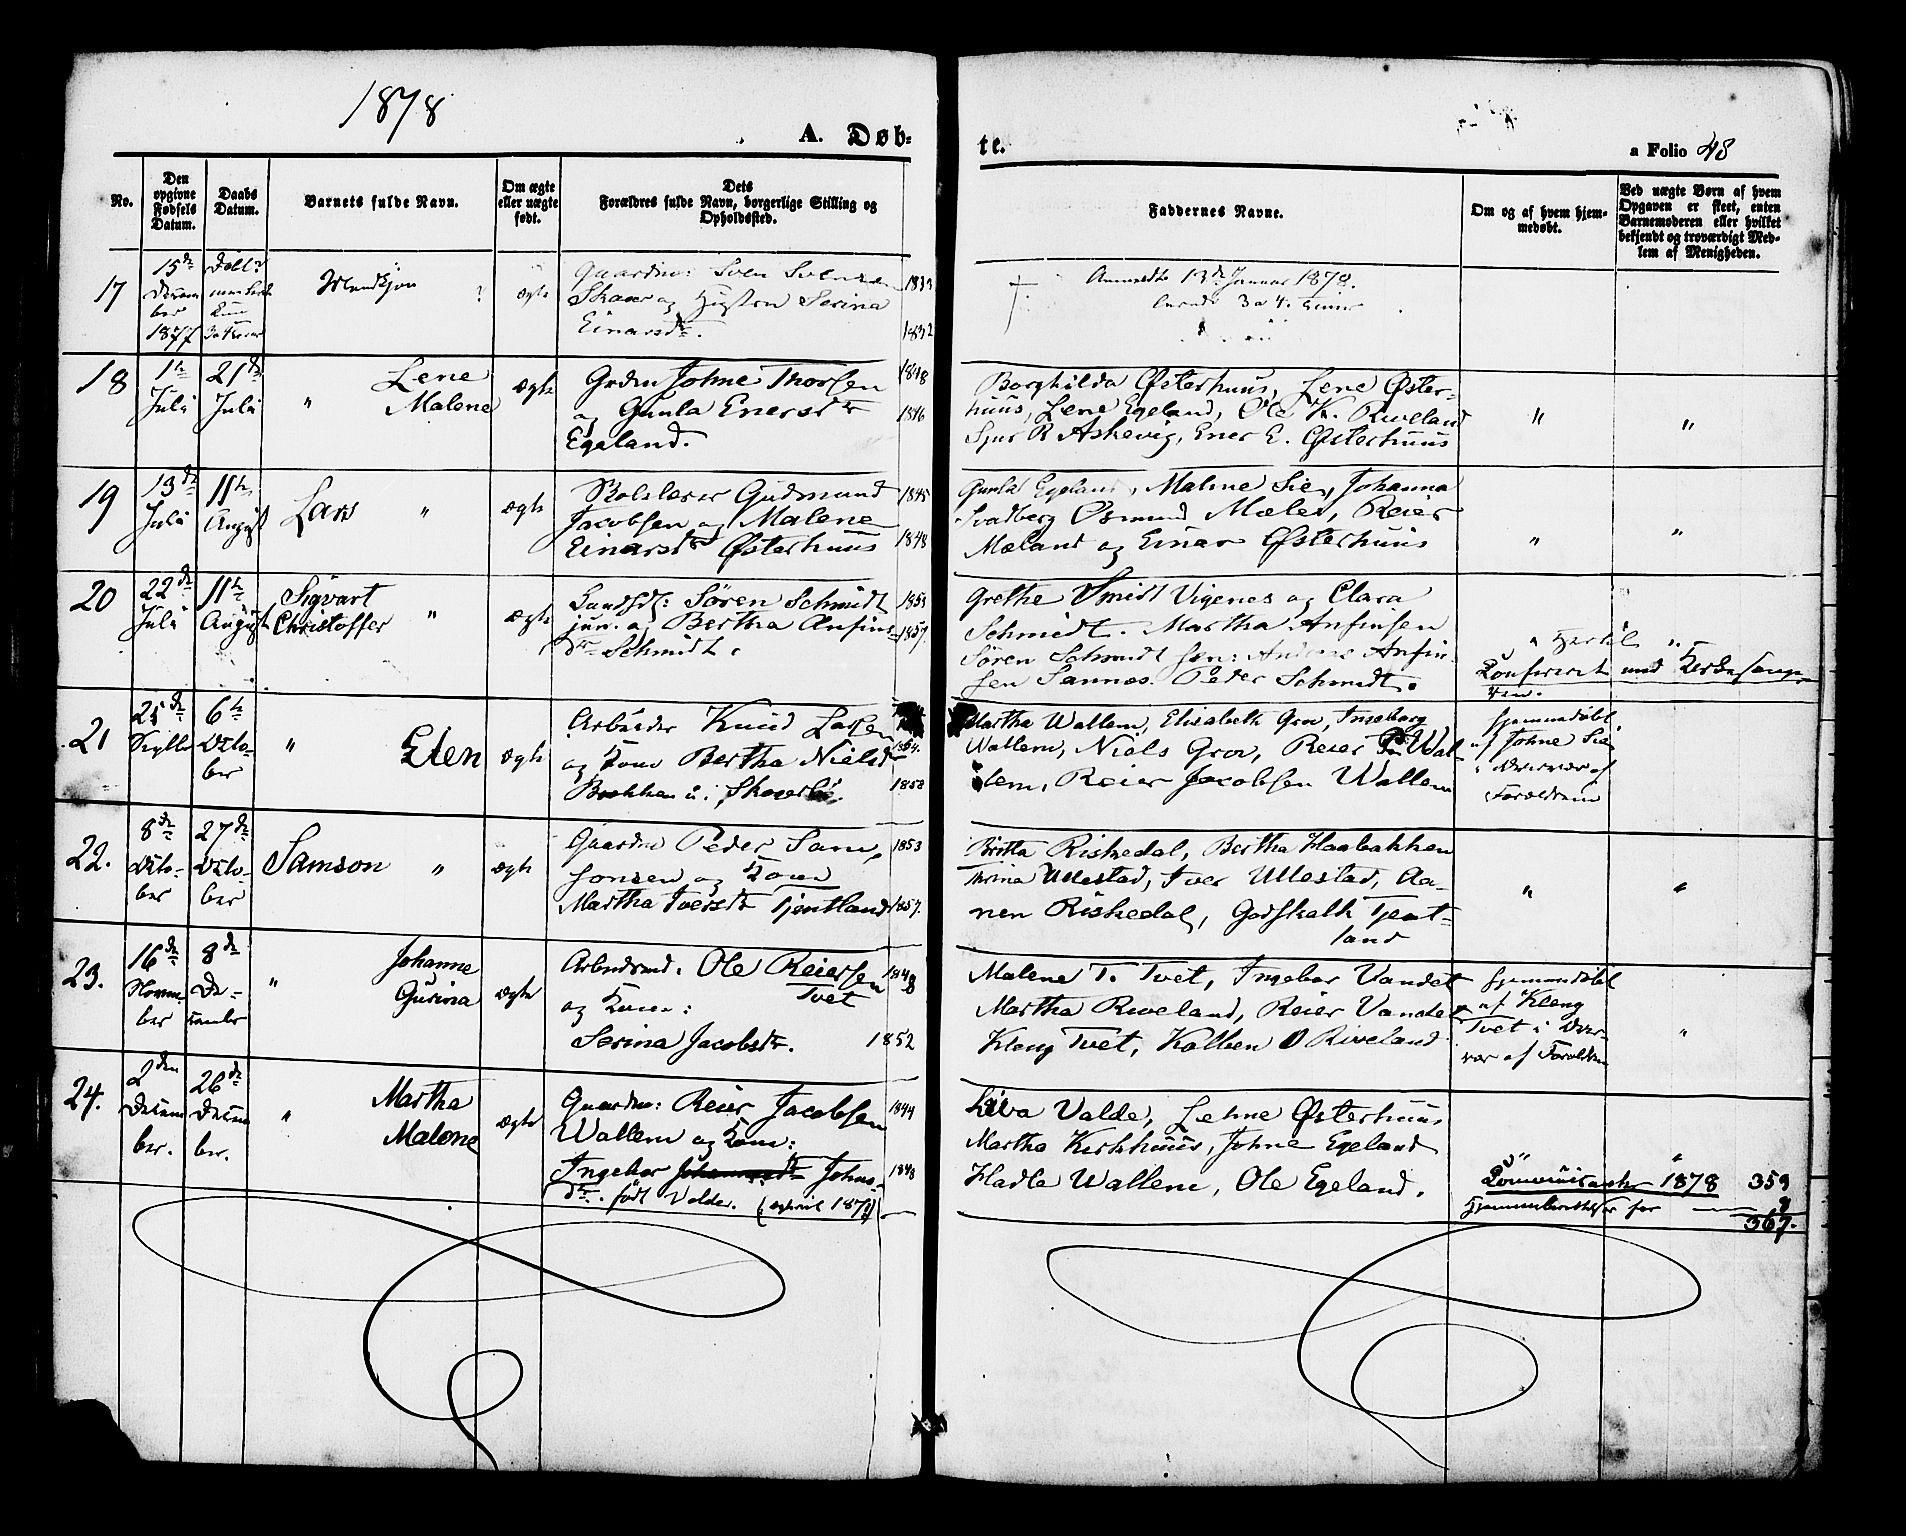 1878
A. Døb=
te.
a Folio 48
No.
Den opgivne Fødsels Datum.
Daabs Datum.
Barnets fulde Navn.
Om ægte eller uægte født.
Dets Forældres fulde Navn, borgerlige Stilling og Opholdssted.
Faddernes Navne.
Om og af hvem hjemmedøbt.
Ved uægte Børn af hvem Opgaven er skeet, enten Barnemoderen eller hvilket bekjendt og troværdigt Medlem af Menigheden.
17
15de
Decem
ber
1877
ægte
Gaardm: Sven Svensen
og
Serina
Einarsdtr.
1832
Anmeldte 13de Januar 1878.
3 a 4
18
1ste
Juli
21de
Juli
"
Lene
Malene
ægte
Grdm Johne Thorsen
og Gunla Enersdtr
Egeland.
1848
1846
Borghilda Østerhuus, Lene Øster-
huus, Lene Egeland, Ole K. Riveland
Sjur R Askevig, Ener E. Østerhuus
"
"
19
13de
Juli
11te
August
Lars
"
ægte
Gudmund
Jacobsen og Malene
Einarsdtr Østerhuus
1845
1848
Gunla Egeland, Malene Sie, Johanna
Svadberg Osmund Mæle, Reier
Mæland og Einar Østerhuus
"
"
20
22de
Juli
11te
August
Sigvart
Christoffer
"
ægte
Søren Schmidt
jun. og Bertha Anfins
dtr Schmidt.
1857
Grethe Smidt Vigenes og Clara
Schmidt. Martha Anfinsen
Søren Schmidt sen: Andreas Anfin
sen Sannes. Peder Schmidt.
" Hertil "
Konfereret med Kirkesange
ren.
21
25de
6te
Okto-
ber
"
Elen
ægte
Arbeider Knud Larsen
og Kone Bertha Nielsdtr
Brekken
1852
Martha Wallem, Elisabeth Grov, Ingeborg
Wallem, Niels Grov, Reier Wal
lem, Reier Jacobsen Wallem
hjemmedøbt
af Johne Sie
i Overvær af
Forældrene
22.
8de
Okto-
ber
27de
Okto-
ber
Samson
"
ægte
Gaardm Peder Sam
sonsen og Kone
Martha Iversdtr Tjentland
1853
1857.
Britta Riskedal, Bertha Haabakken
Thrina Ullestad, Iver Ullestad, Aa-
nen Riskedal, Godskalk Tjent-
land
"
"
23.
16de
Novem
ber
8de
De-
cember
"
Johanne
Gurina
ægte
Arbeidsmd. Ole Reiersen
Tvet
og Kone:
Serina Jacobsdtr.
1848
1852
Malene T. Tvet, Ingebor Vandet
Martha Riveland, Reier Vandet
Kleng Tvet, Kolben O Riveland
hjemmedøbt
af Kleng
Tvet i Over
vær af Forældrene
"
24.
2den
Decem
ber.
26de
Decem
ber.
"
Martha
Malene
ægte
Gaardm: Reier Jacobsen
Wallem og Kone:
Ingebor Johannesdtr Johns-
dtr. født Valde. (egteviet 187)
1844
1848
Liva Valde, Lehne Østerhuus
Martha Kirkhuus, Johne Egeland
Hadle Wallem, Ole Egeland.
"
"
1878 359
Hjemmeberettelser for — 8
367.